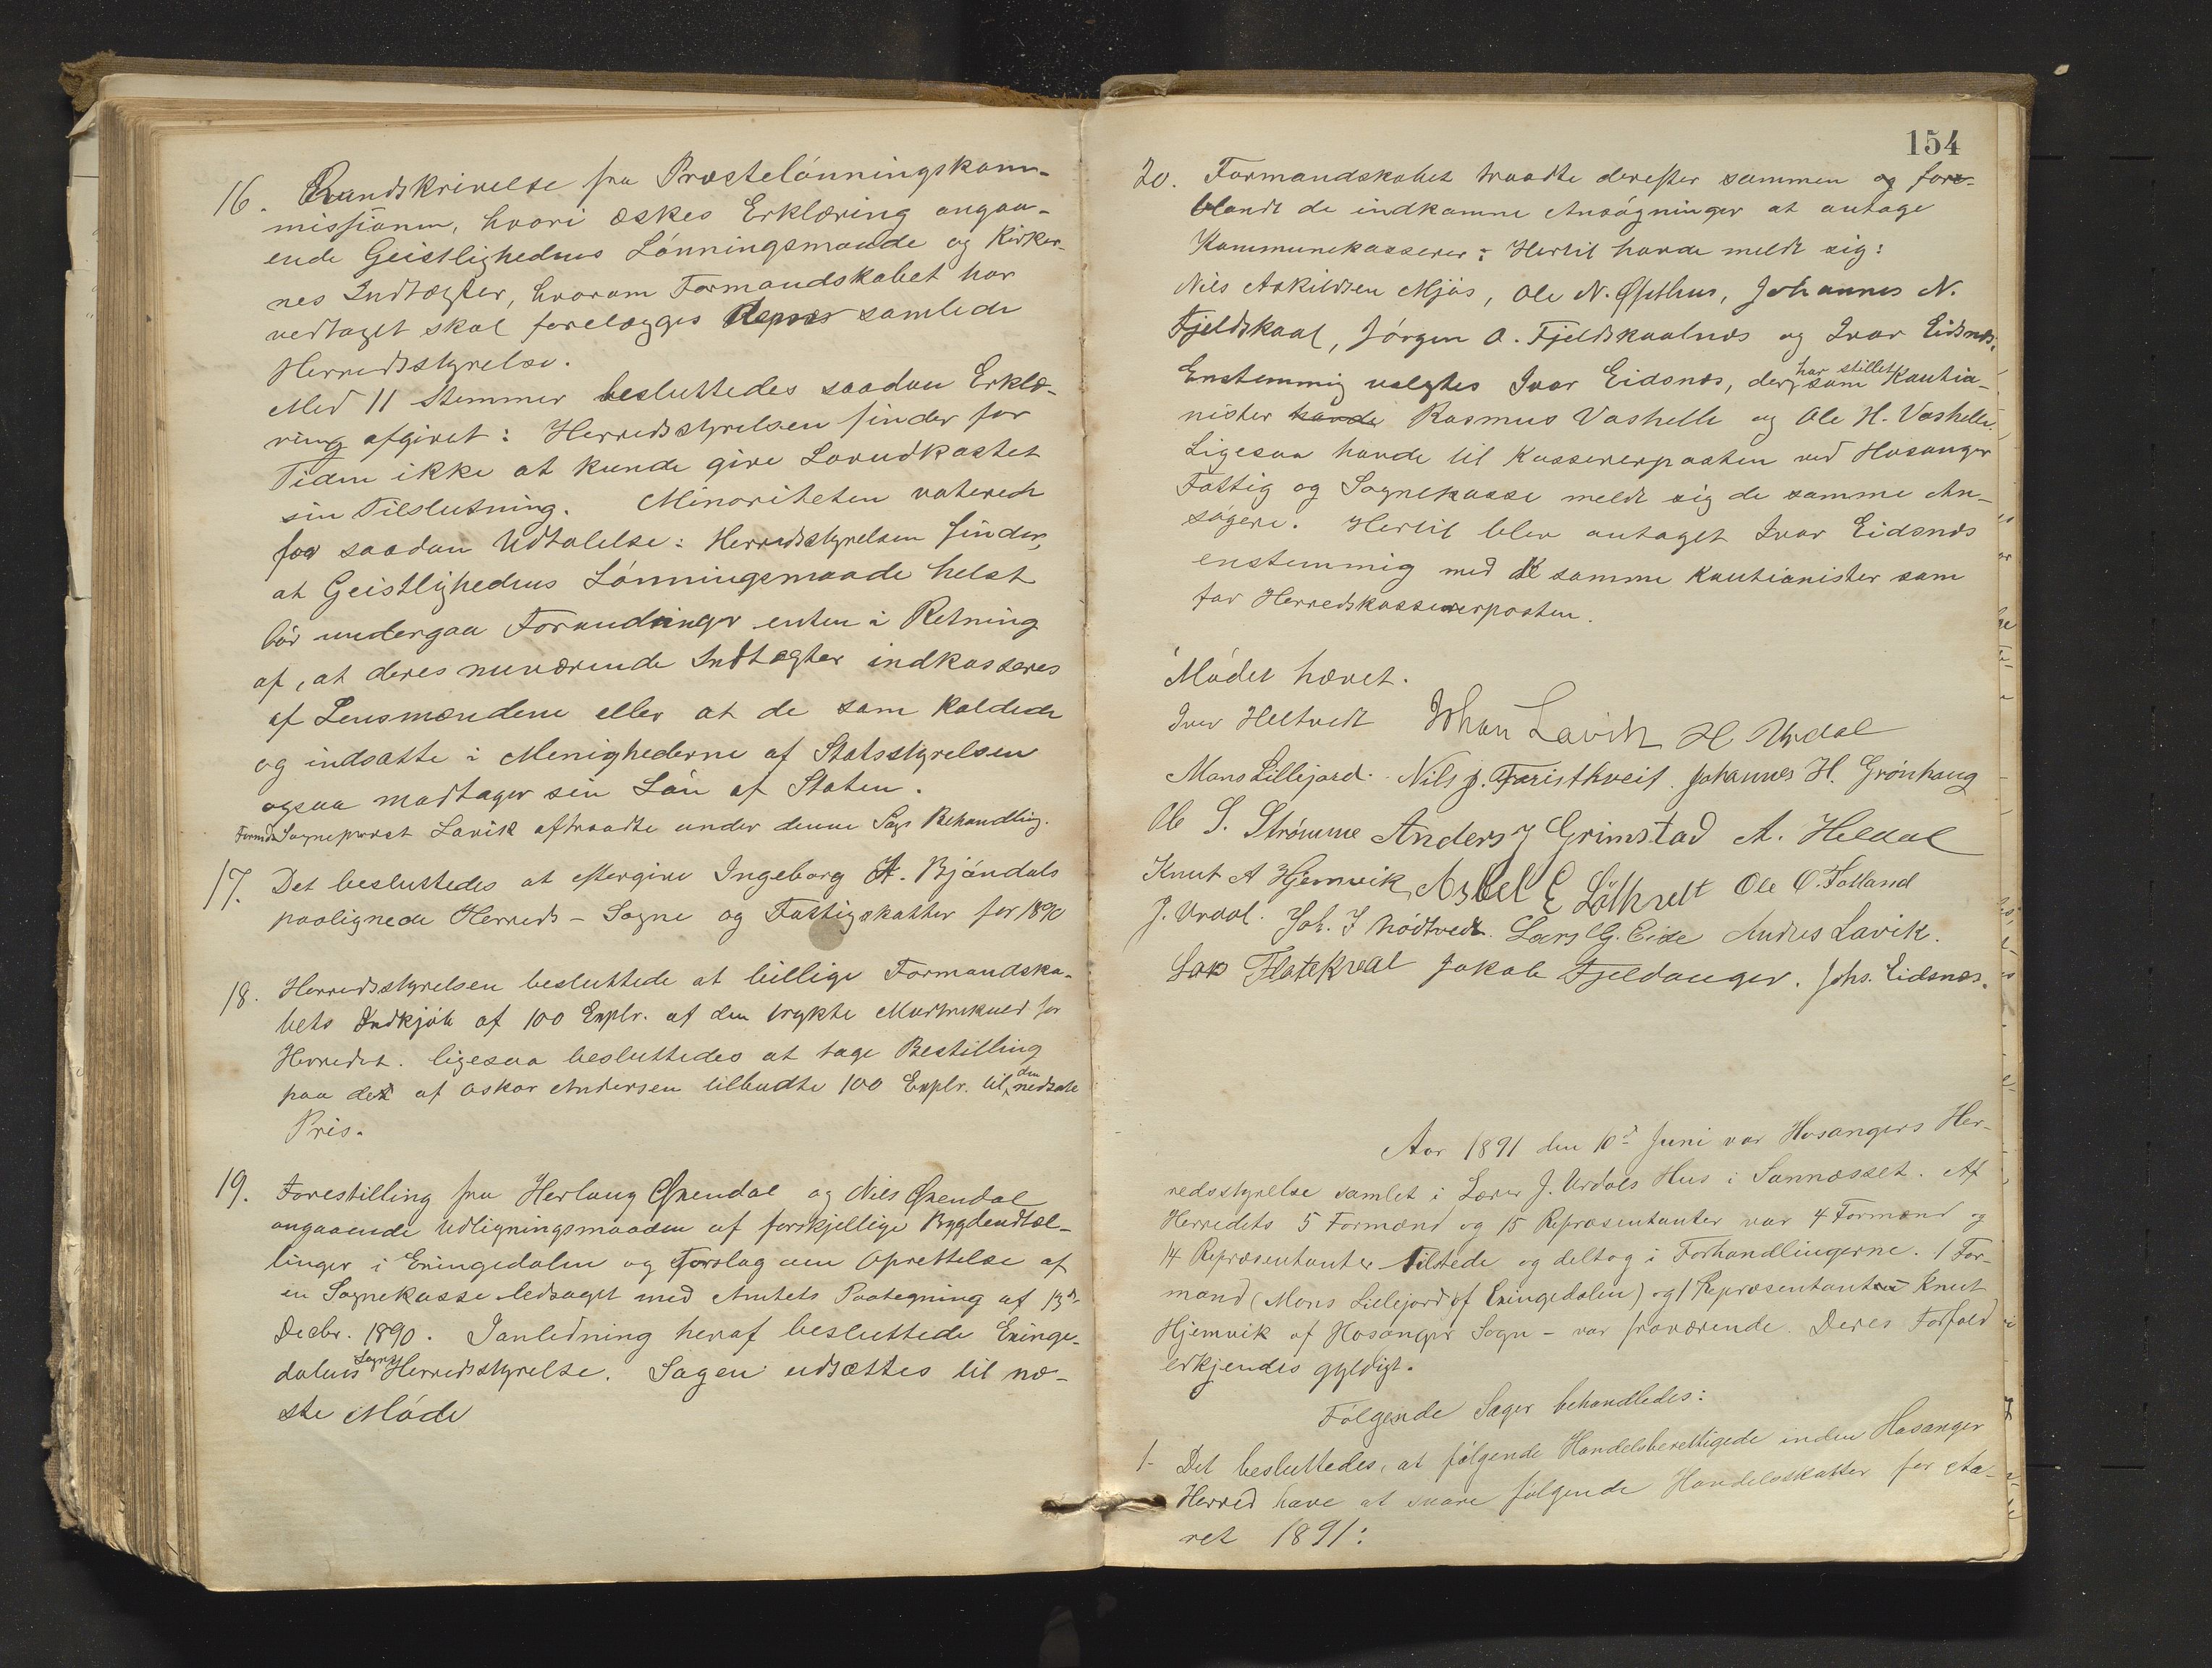 16. Rundskrivelse fra Præstelønningskom-
missionen, hvori æskes Erklæring angaa-
ende Geistlighedens Lønningsmaade og Kirker-
nes Indtægter, hvorom Formandskabet har
vedtaget skal forelægges Repræs samlede
Herredsstyrelse.
Med 11 Stemmer besluttedes saadan Erklæ-
ring afgivet: Herredsstyrelsen finder for
Tiden ikke at kunde give Lovudkastet
sin Tilslutning. Minoriteten voterede
for saadan Udtalelse: Herredsstyrelsen finder,
at Geistlighedens Lønningsmaade helst
bør undergaa Forandringer enten i Retning
af, at deres nuværende Indtægter indkasseres
af Lensmændene eller at de som kaldede
og indsatte i Menighederne af Statsstyrelsen
ogsaa modtager sin Løn af Staten.
Sognepræst Lavik aftraadte under denne Sags Behandling.
17. Det besluttedes at eftergive Ingeborg A. Bjøndals
paalignede Herreds- Sogne og Fattigskatter for 1890
18. Herredsstyrelsen besluttede at billige Formandska-
bets Indkjøb af 100 Explr. af den trykte Madtrikuel for
Herredet. ligesaa besluttedes at tage Bestilling
paa det af Oskar Andersen tilbudte 100 Explr. til den nedsatte
Pris.
19. Forestilling fra Herlaug Øxendal og Nils Øxendal
angaaende Udligningsmaaden af forskjellige Bygdeudtæl-
linger i Exingedalen og Forslag om Oprettelse af
en Sognekasse ledsaget med Amtets Paategning af 13de
Decbr. 1890. I anledning heraf besluttede Exinge-
dalens Sogns Herredsstyrelse. Sagen udsættes til næ-
ste Møde
154
20. Formandskabet traadte derefter sammen og for-
blandt de indkomne Ansøgninger at antage
Kommunekasserer: Hertil havde meldt sig:
Nils Askildsen Mjøs, Ole N. Øpsthus, Johannes N.
Fjeldskaal, Jørgen O. Fjeldskaalnes og Ivar Eidsnes.
Enstemmig valgtes Ivar Eidsnes, der har stillet som Kautio-
nister havde Rasmus Vashelle og Ole H. Vashelle.
Ligesaa havde til Kassererposten ved Hosanger
Fattig og Sognekasse meldt sig de samme An-
søgere. Hertil blev antaget Ivar Eidsnes
enstemmig med de samme Kautionister som
for Herredskassererposten.
Mødet hævet.
Iver Heltvedt Johan Lavik H Urdal
Mons Lillejord. Nils J. Faristhveit. Johannes H. Grønhaug
Ole S. Strømme Anders J Grimstad A. Heldal
Knut A Hjemvik, Askel E Løtkvelt Ole O. Fotland
J. Urdal. Joh. J Nødtvedt. Lars G. Eide Andres Lavik.
Lars Flatekval Jakob Fjeldanger. Johs. Eidsnes.
Aar 1891 den 10de Juni var Hosangers Her-
redsstyrelse samlet i Lærer J. Urdals Hus i Sannæsset. Af
Herredets 5 Formænd og 15 Repræsentanter var 4 Formænd og
14 Repræsentanter tilstede og deltog i Forhandlingerne. 1 For-
mand (Mons Lillejord af Exingedalen) og 1 Repræsentant Knut
Hjemvik af Hosanger Sogn - var fraværende. Deres Forfald
erkjendes gyldigt.
Følgende Sager behandledes:
1- Det besluttedes, at følgende Handelsberettigede inden Hosanger
Herred have at svare følgende Handelsskatter for Aa-
ret 1891: